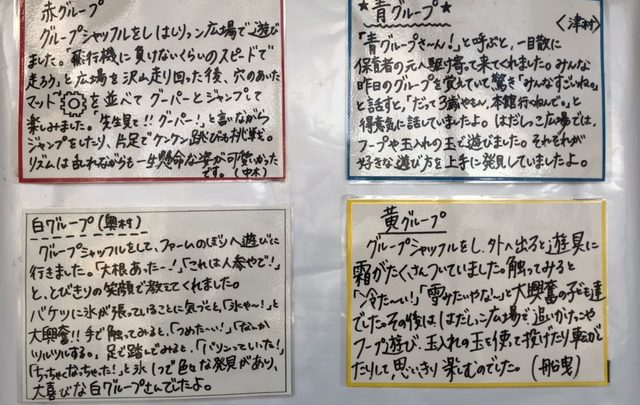 赤グループ
グループシャッフルをしはじりっこ広場で遊び
ました。「飛行機に負けないくらいのスピードで
走ろう」と広場を沢山走り回った後、穴のあいた
マット を並べてグーパーとジャンプして
楽しみました。「先生見て!!グーパー!」と言いながら
ジャンプをしたり、片足でケンケン跳びにも挑戦。
リズムは乱れながらも一生懸命な姿が可愛かった
です。(中木)
★青グループ★
〈津村〉
「青グループさ〜ん!」と呼ぶと、一目散に
保育者の元へ駆け寄って来てくれました。みんな
昨日のグループを覚えていて驚き「みんなすごいね。」
と話すと、「だって3歳やもん、本館行ねんで。」と
得意気に話していましたよ。はだしっこ広場では、
フープや玉入れの玉で遊びました。それぞれが
好きな遊び方を上手に発見していましたよ。
白グループ(奥村)
グループシャッフルをして、ファームのぼりへ遊びに
行きました。「大根あったー!」「これは人参やで!」
と、とびきりの笑顔で教えてくれました。
バケツに氷が張っていることに気づくと、「氷ゃー!」と
大興奮!!手で触ってみると、「つめたーい!」「なんか
ツルツルする。」足で踏んでみると、「バリンっていった!」
「ちっちゃくなっちゃった!」と氷1つで色々な発見があり、
大喜びな白グループさんでしたよ。
黄グループ
グループシャッフルをし、外へ出ると遊具に
霜がたくさんついていました。触ってみると
「冷た〜い!」「雪みたいやな〜」と大興奮の子ども達
でした。その後ははだしっこ広場で、追いかけっこや
フープ遊び、玉入れの玉を使って投げたり、転がし
たりして、思いきり楽しむのでした。(舟曳)